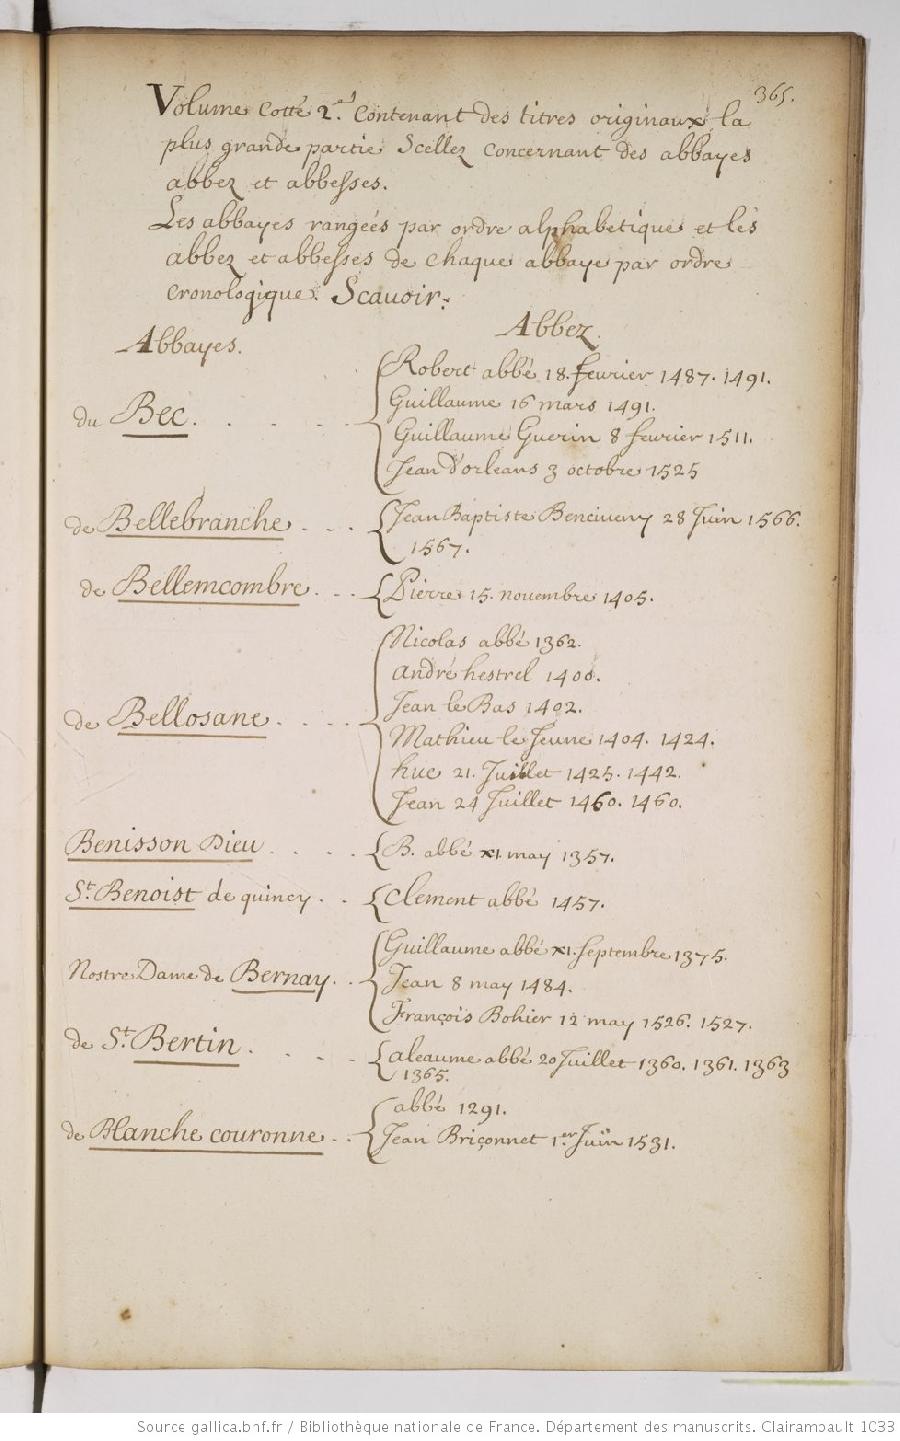 365.
Volume Cotté 2.d Contenant des titres originaux, la
plus grande partie Scellez Concernant des abbayes
abbez et abbesses.
Les abbayes rangées par ordre alphabetique et les
abbez et abbesses de chaque abbaye par ordre
cronologique. Scauoir.
Abbayes.
Abbez.
du Bec. . . . .
Robert abbé 18. feurier 1487. 1491.
Guillaume 16 mars 1491.
Guillaume Guerin 8 feurier 1511.
Jean d'orleans 3 octobre 1525
de Bellebranche . . .
Jean Baptiste Benciueny 28 Juin 1566.
1567.
de Bellemcombre . . .
Pierre 15. nouembre 1405.
de Bellosane . . . .
Nicolas abbé 1362.
André hestrel 1400.
Jean le Bas 1402.
Mathieu le Jeune 1404. 1424.
hue 21. Juillet 1425. 1442.
Jean 24 Juillet 1460. 1460.
Benisson Dieu . . . .
B. abbé XI. may 1357.
St. Benoist de quincy . . .
Clement abbé 1457.
Nostre Dame de Bernay . .
Guillaume abbé XI. septembre 1375.
Jean 8 may 1484.
François Bohier 12 may 1526. 1527.
de St. Bertin . . . .
aleaume abbé 20 Juillet 1360. 1361. 1363
1365.
de Blanche couronne . . .
abbé 1291.
Jean Briçonnet 1er Juin 1531.
Source gallica.bnf.fr / Bibliothèque nationale de France. Département des manuscrits. Clairambault 1033